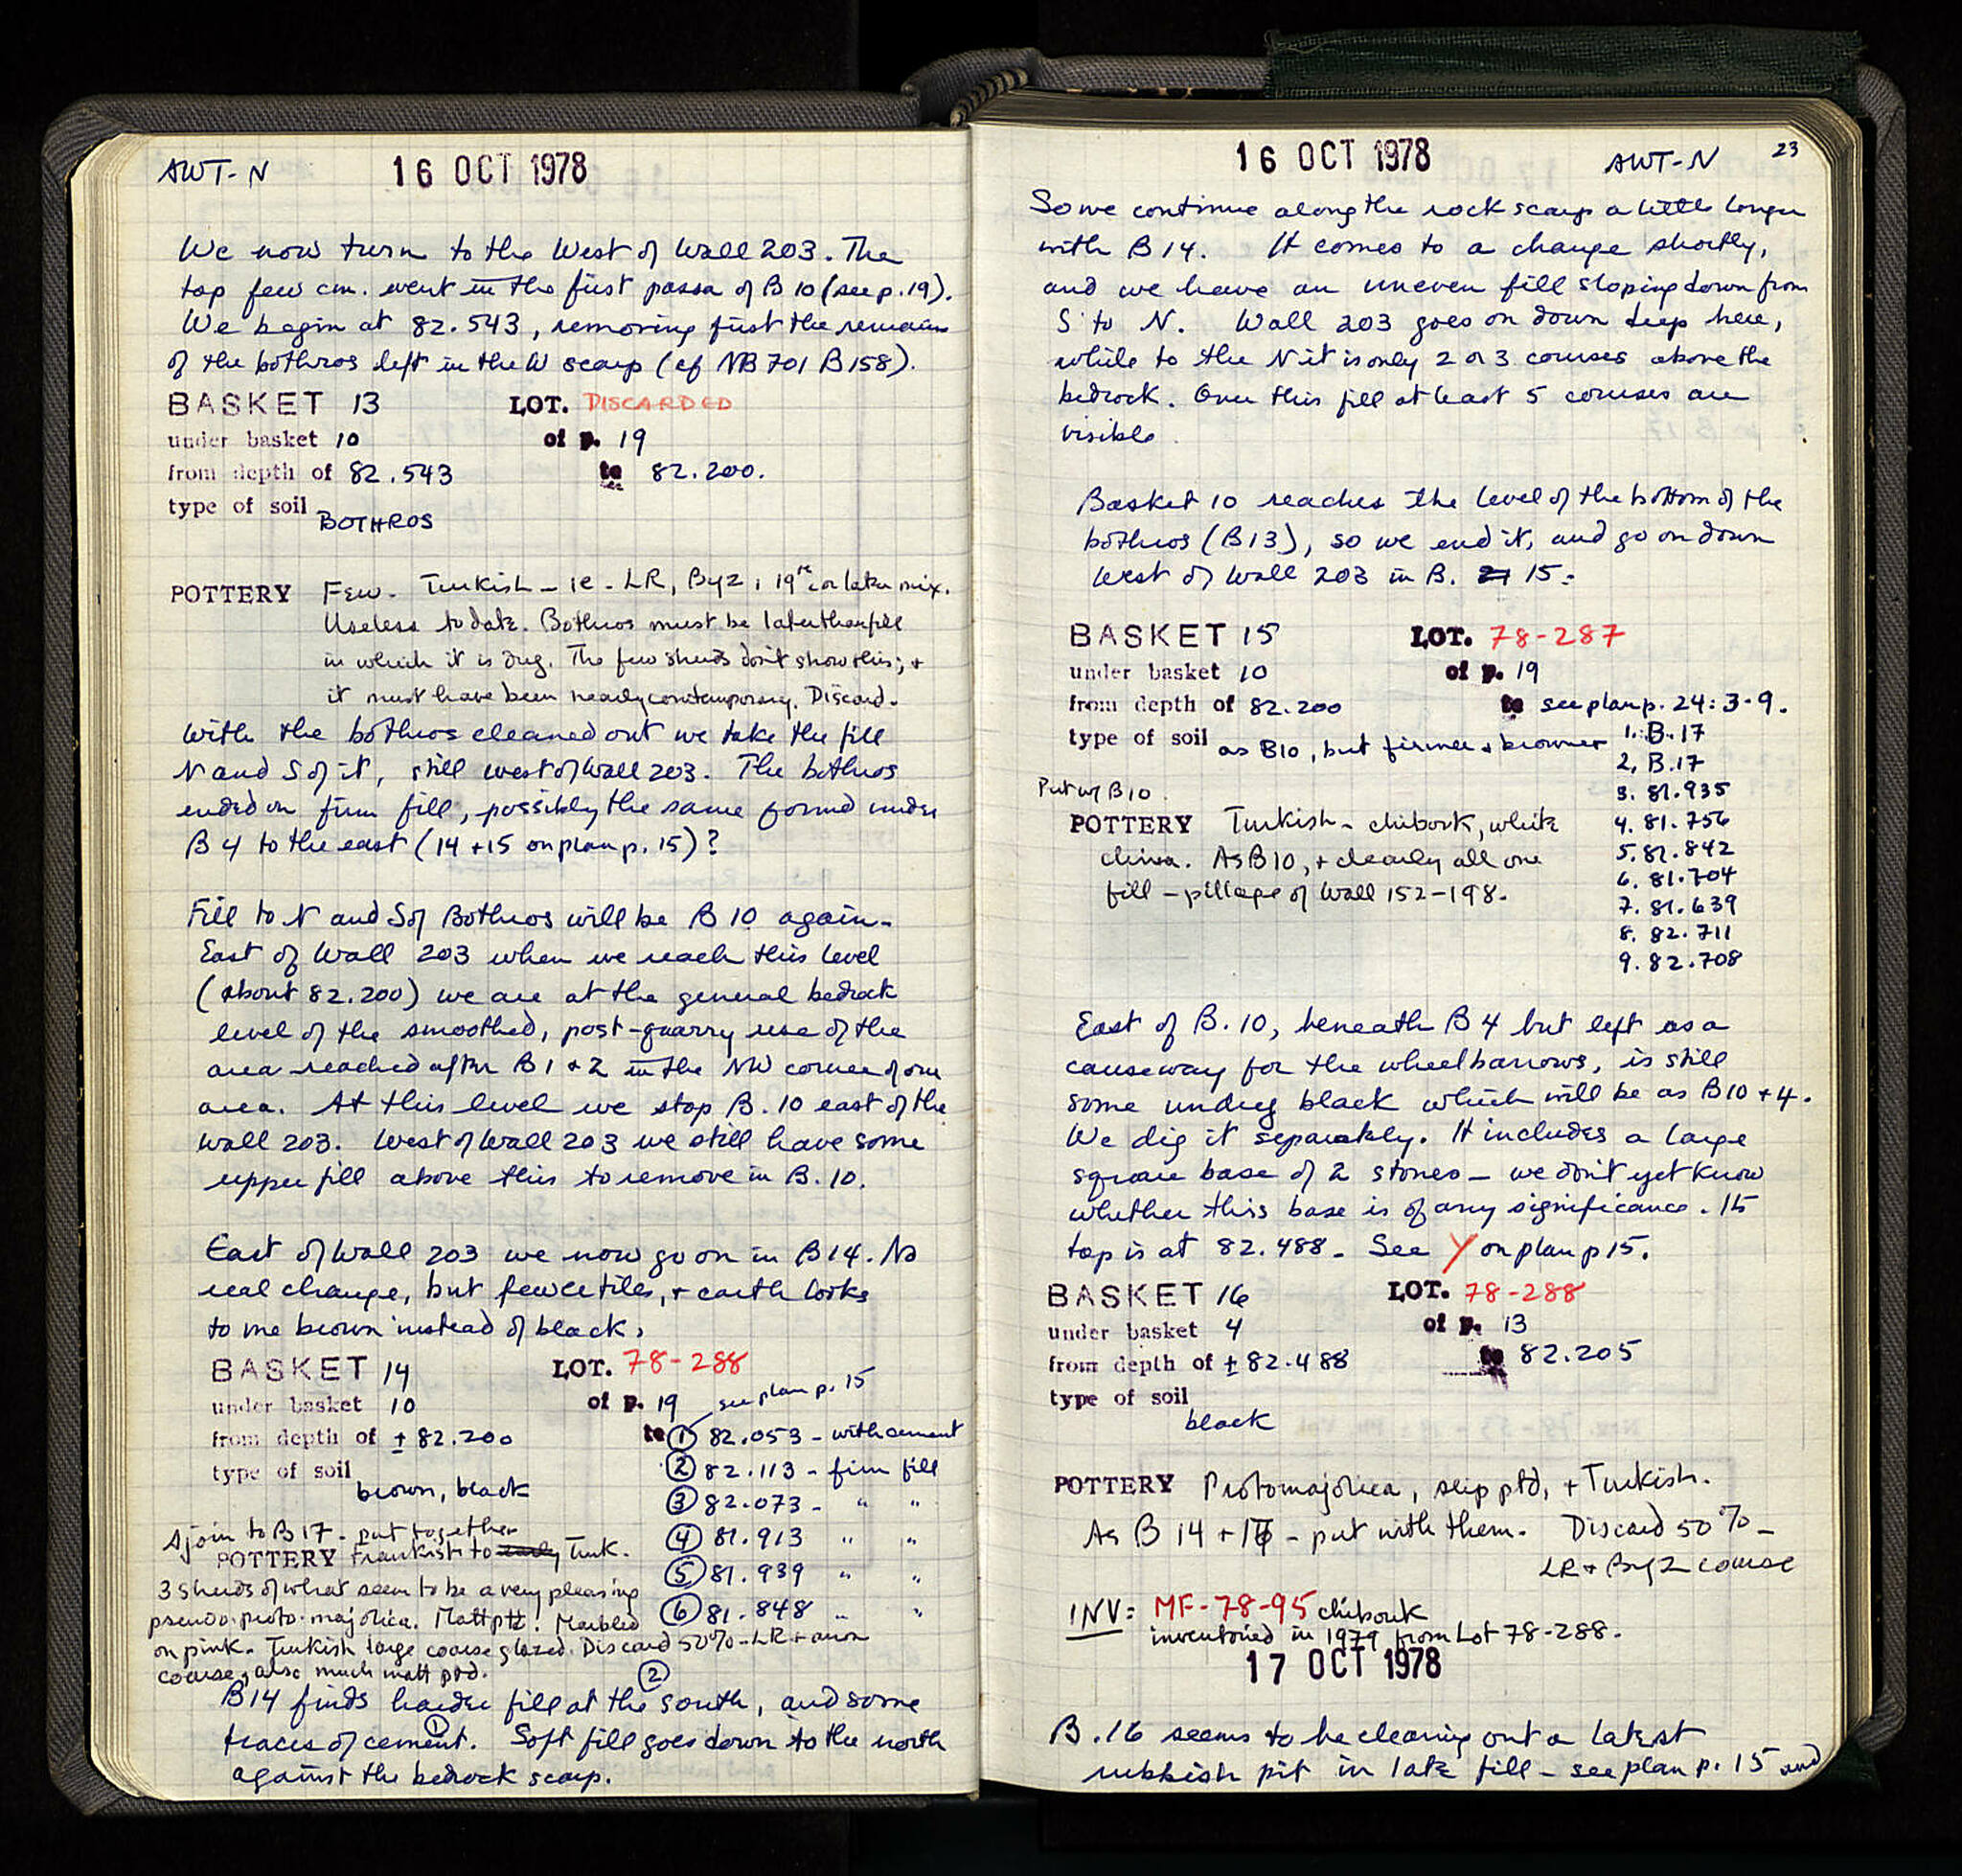 AWT-N 16 OCT 1978
We now turn to the West of Wall 203. The
top few cm. went in the first passa of B 10 (see p. 19).
We begin at 82.543, removing first the remains
of the bothros left in the W scarp (cf NB 701 B158).
BASKET 13 LOT. DISCARDED
under basket 10 of p. 19
from depth of 82.543 to 82.200.
type of soil BOTHROS
POTTERY Few. Turkish - ie - LR, Byz, 19th c or later mix.
Useless to date. Bothros must be later than fill
in which it is dug. The few sherds don't show this; +
it must have been nearly contemporary. Discard.
With the bothros cleaned out we take the fill
N and S of it, still west of Wall 203. The bothros
ended on firm fill, possibly the same found under
B 4 to the east (14 + 15 on plan p. 15)?
Fill to N and S of Bothros will be B 10 again.
East of Wall 203 when we reach this level
(about 82.200) we are at the general bedrock
level of the smoothed, post-quarry use of the
area reached after B 1 + 2 in the NW corner of our
area. At this level we stop B. 10 east of the
wall 203. West of Wall 203 we still have some
upper fill above this to remove in B. 10.
East of Wall 203 we now go on in B14. No
real change, but fewer tiles, + earth looks
to me brown instead of black.
BASKET 14 LOT. 78-288
under basket 10 of p. 19 see plan p. 15
from depth of ± 82.200 to ① 82.053 - with cement
type of soil brown, black ② 82.113 - firm fill
③ 82.073 - " "
④ 81.913 " "
⑤ 81.939 " "
⑥ 81.848 " "
Ajoin to B17 - put together
POTTERY Frankish to early Turk.
3 sherds of what seem to be a very pleasing
pseudo-proto-majolica. Matt ptd! Marbled
on pink. Turkish large coarse glazed. Discard 50% - LR + misc
coarse, also much matt ptd.
②
B14 finds harder fill at the south, and some
①
traces of cement. Soft fill goes down to the north
against the bedrock scarp.
16 OCT 1978 AWT-N 23
So we continue along the rock scarp a little longer
with B 14. It comes to a change shortly,
and we have an uneven fill sloping down from
S to N. Wall 203 goes on down deep here,
while to the N it is only 2 or 3 courses above the
bedrock. Over this fill at least 5 courses are
visible.
Basket 10 reaches the level of the bottom of the
bothros (B13), so we end it, and go on down
West of Wall 203 in B. 15:
BASKET 15 LOT. 78-287
under basket 10 of p. 19
from depth of 82.200 to see plan p. 24: 3-9.
type of soil as B10, but firmer + browner
1. B.17
2. B.17
3. 81.935
4. 81.756
5. 81.842
6. 81.704
7. 81.639
8. 82.711
9. 82.708
Put w/ B10
POTTERY Turkish - chibouk, white
china. As B10, + clearly all one
fill - pillage of Wall 152-198.
East of B. 10, beneath B 4 but left as a
causeway for the wheelbarrows, is still
some undug black which will be as B10 + 4.
We dig it separately. It includes a large
square base of 2 stones - we don't yet know
whether this base is of any significance. Its
top is at 82.488. See Y on plan p 15.
BASKET 16 LOT. 78-288
under basket 4 of p. 13
from depth of ± 82.488 to 82.205
type of soil black
POTTERY Protomajolica, slip ptd, + Turkish.
As B 14 + 17 - put with them. Discard 50% -
LR + Byz coarse
INV: MF-78-95 chibouk
inventoried in 1979 from Lot 78-288.
17 OCT 1978
B. 16 seems to be cleaning out a latest
rubbish pit in late fill - see plan p. 15 and